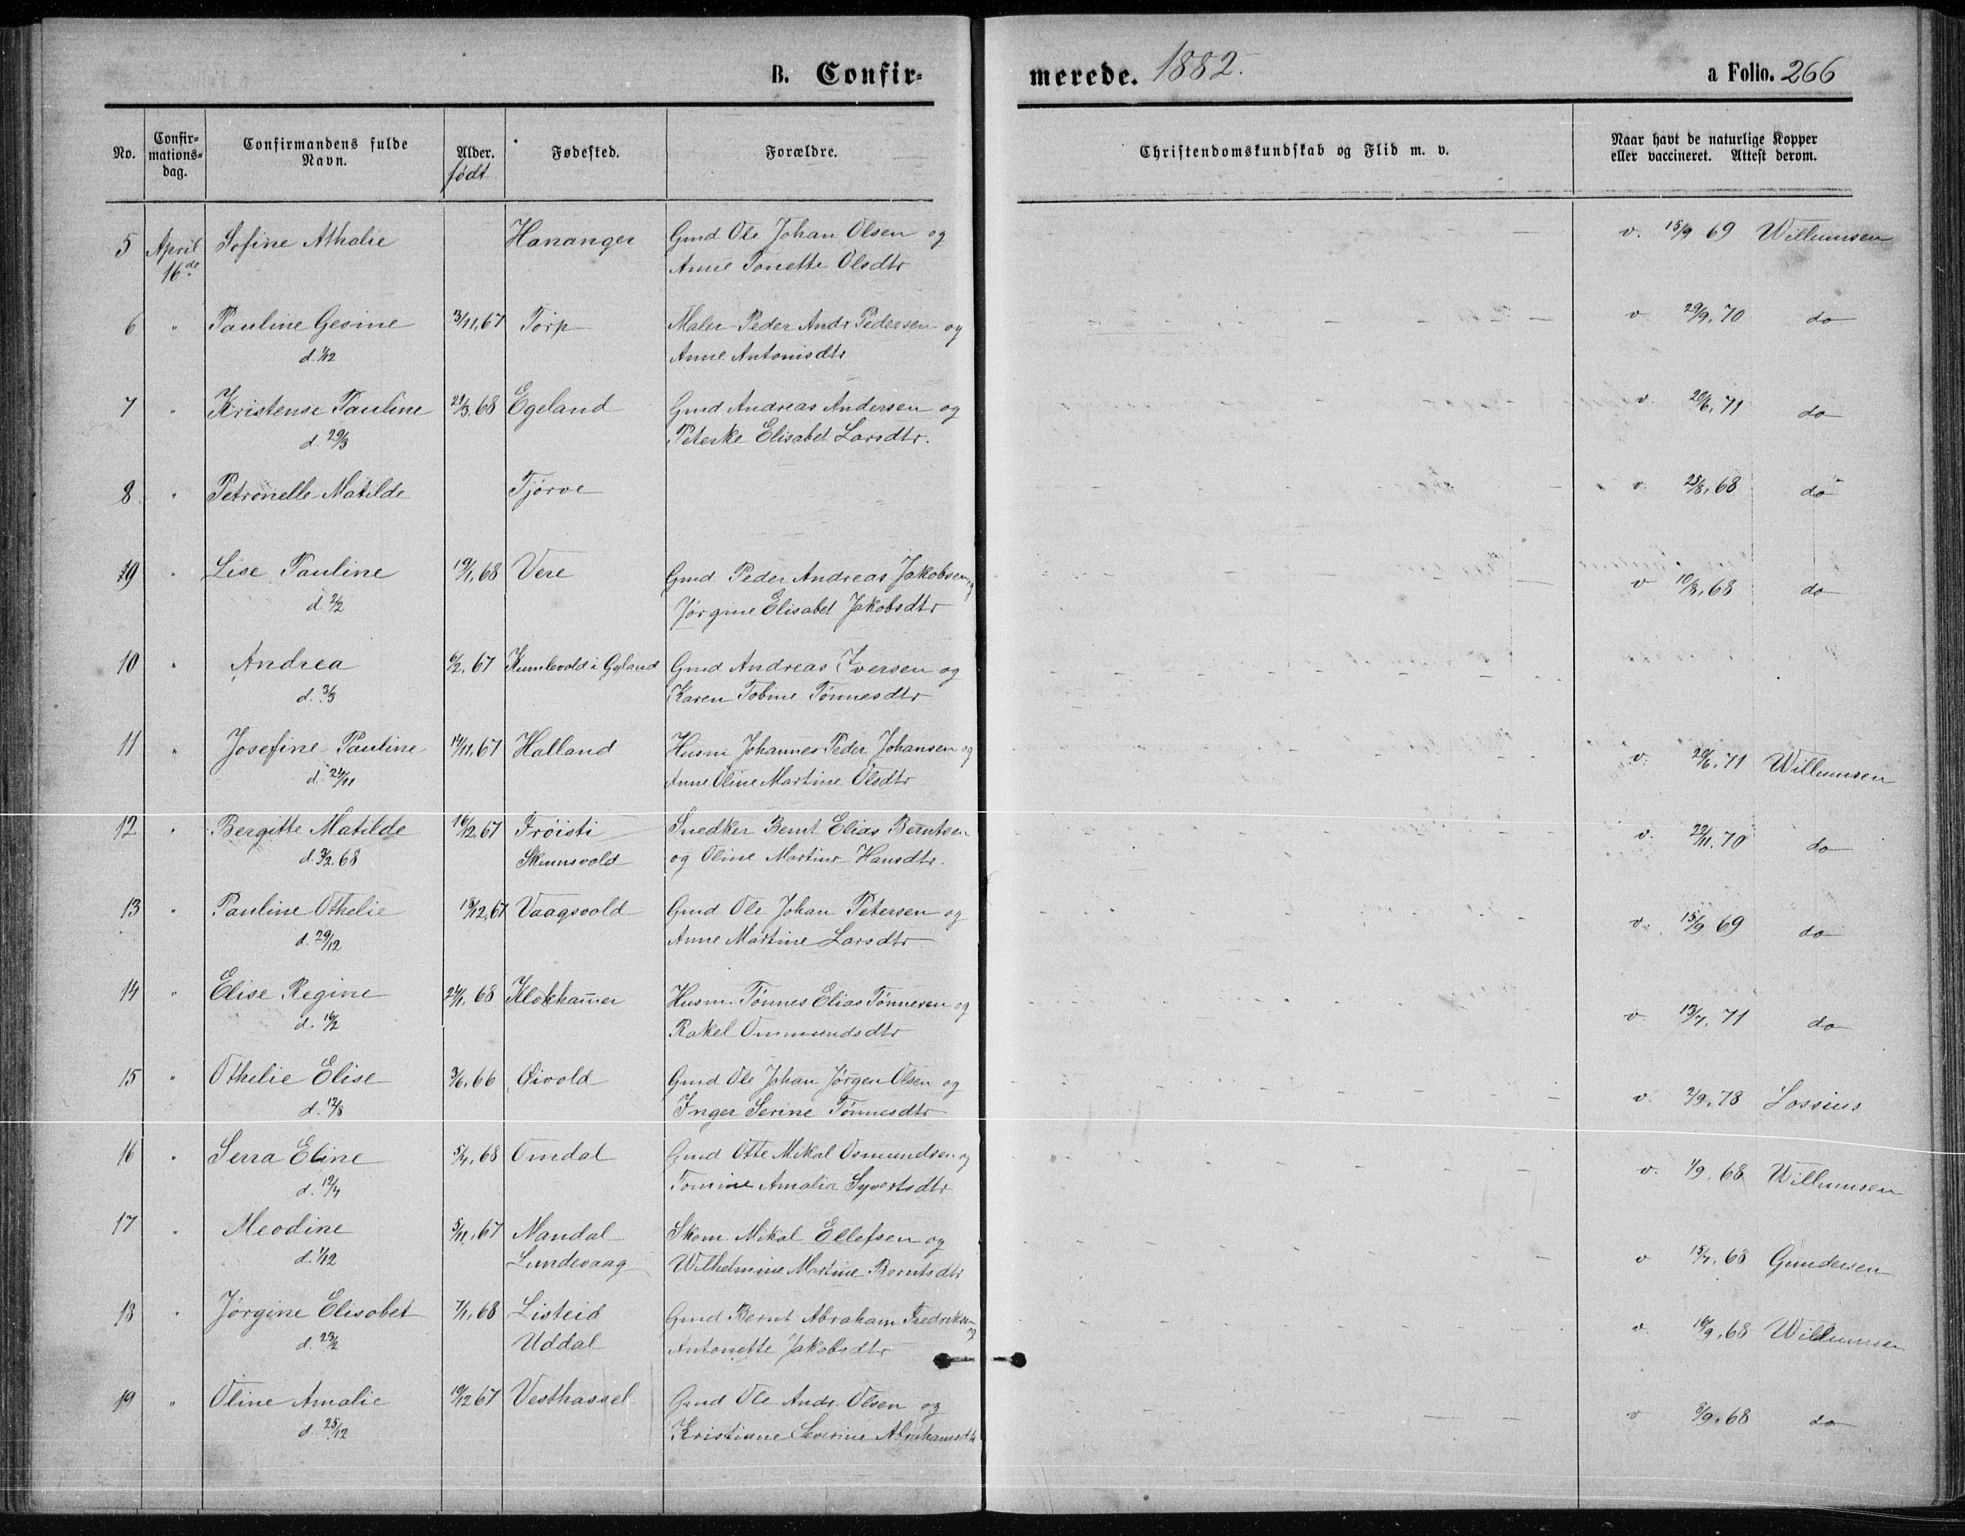 B. Confir-
merede. 1882.
a Folio. 266
No.
Confir-
mations-
dag.
Confirmandens fulde
Navn.
Alder.
født.
Fødested.
Forældre.
Christendomskundskab og Flid m. v.
Naar havt de naturlige Kopper
eller vaccineret. Attest derom.
5 April Sofine Athalie Hananger Gmd Ole Johan Olsen og v. 15/9 69 Willumsen
16de Anne Tonette Olsdtr
6 " Pauline Gesine 3/11.67 Torp Maler Peder Andr Pedersen og v 29/9.70 do
d. 1/12 Anne Antonisdtr
7 " Kristense Pauline 21/3.68 Egeland Gmd Andreas Andersen og v. 20/6.71 do
d. 29/3 Peterke Elisabet Larsdtr.
8 " Petronelle Matilde Tjørve v. 25/8.68 do
9 " Lise Pauline 19/1.68 Vere Gmd Peder Andreas Jakobsen og v 10/8.68 do
d. 2/2 Jørgine Elisabet Jakobsdtr
10 " Andrea 6/2.67 Kumlevold i Gyland Gmd Andreas Iversen og
d. 3/3 Karen Tobine Tønnesdtr
11 " Josefine Pauline 14/11.67 Halland Husm Johannes Peder Johansen og v. 20/6.71 Willumsen
d. 24/11 Anne Oline Martine Olsdtr
12 " Bergitte Matilde 16/12.67 Frøisti Snedker Bernt Elias Berntsen v. 22/11.70 do
d. 3/2.68 Skumsvold og Oline Martine Hansdtr.
13 " Pauline Othelie 18/12.67 Vaagsvold Gmd Ole Johan Petersen og v. 15/9 69 do
d. 29/12 Anne Martine Larsdtr
14 " Elise Regine 24/1.68 Klokhamer Husm. Tønnes Elias Tønnesen og v. 13/7.71 do
d. 16/2 Rakel Ommundsdtr
15 " Othelie Elise 3/6.66 Øivold Gmd Ole Johan Jørgen Olsen og v. 2/9.78 Lossius
d. 12/8 Inger Serine Tønnesdtr
16 " Serra Eline 5/4.68 Omdal Gmd Otte Mikal Osmundsen og v. 1/9.68 Willumsen
d. 12/4 Tomine Amalia Syvertsdtr
17 " Meodine 5/11.67 Mandal Skom. Mikal Ellefsen og v 15/7.68 Gundersen
d. 1/12 Lundevaag Wilhelmine Martine Berntsdtr
18 " Jørgine Elisabet 7/1.68 Listeid Gmd Bernt Abraham Fredriksen og v. 16/9.68 Willumsen
d. 23/2 Uddal Antonette Jakobsdtr
19 " Oline Amalie 10/12 67 Vesthassel Gmd Ole Andr. Olsen og v 8/9.68 do
d. 25/12 Kristiane Severine Abrahamsdtr